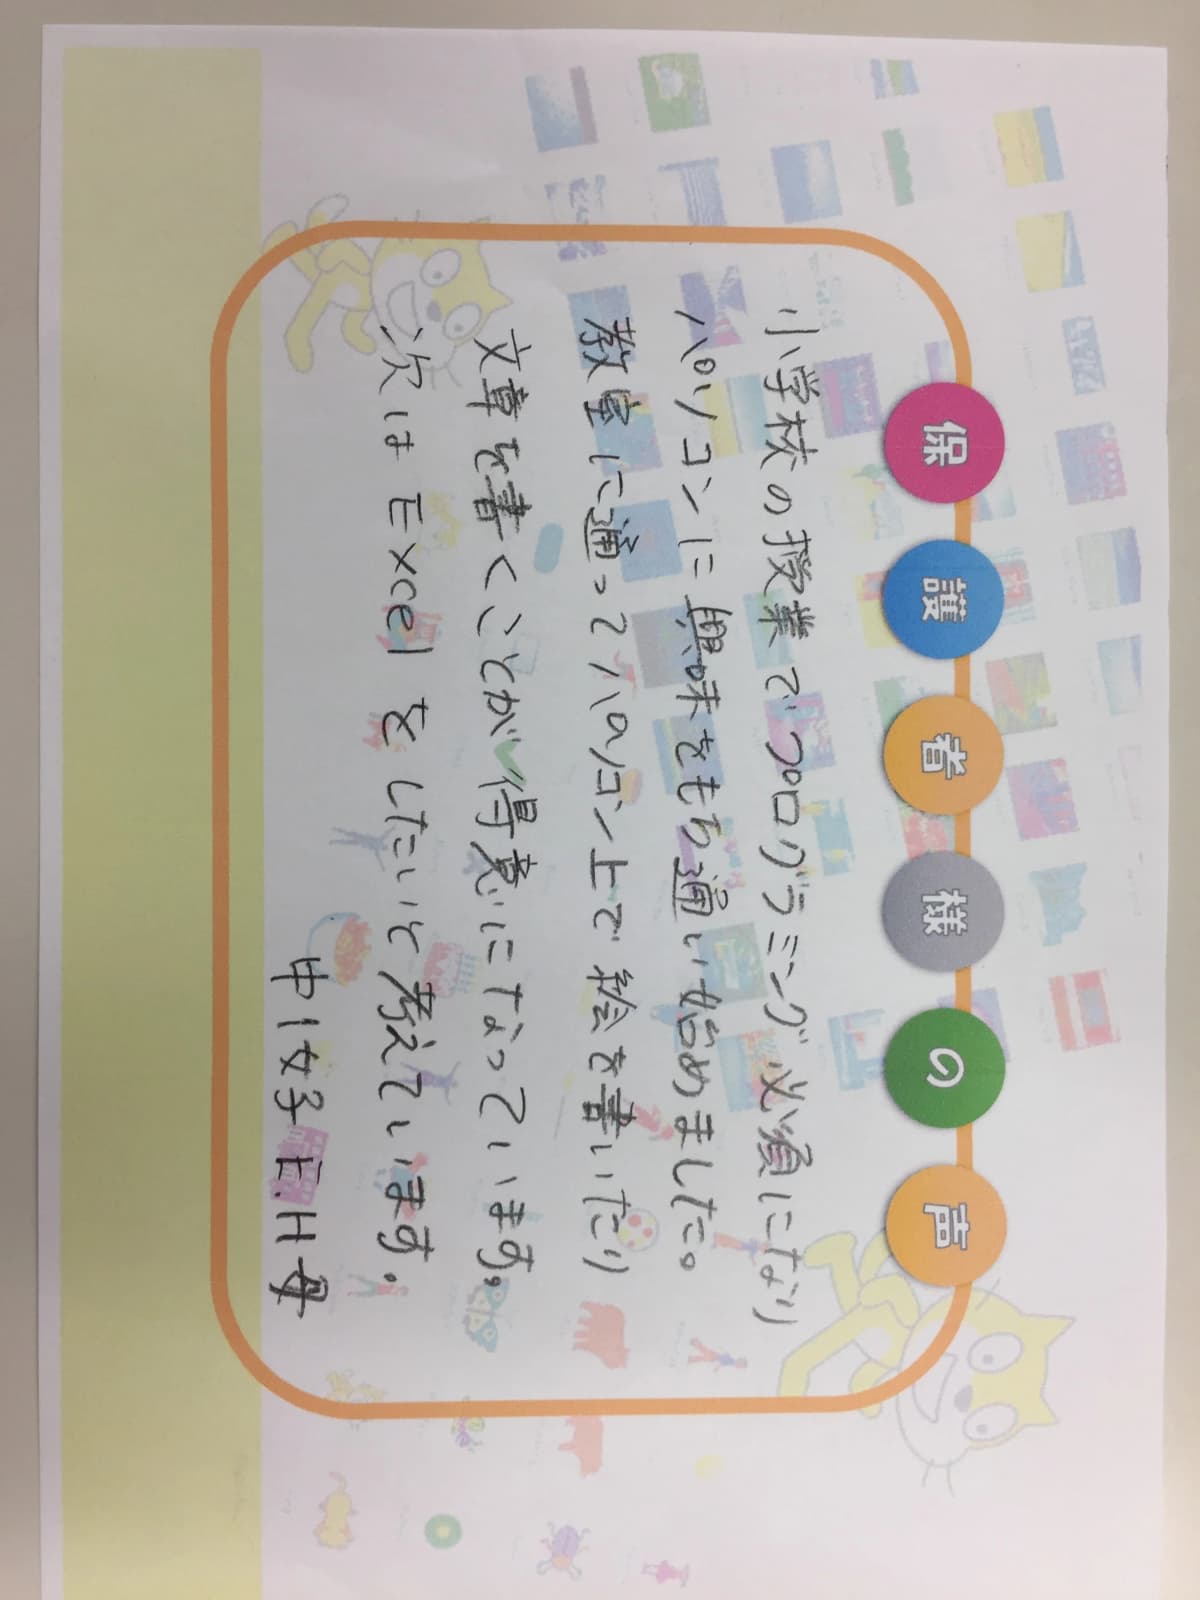 保護者様の声
小学校の授業でプログラミング必須になり
パソコンに興味をもち通い始めました。
教室に通ってパソコン上で絵を書いたり
文章を書くことが得意になっています。
次はExcelをしたいと考えています。
中1女子 E.H 母